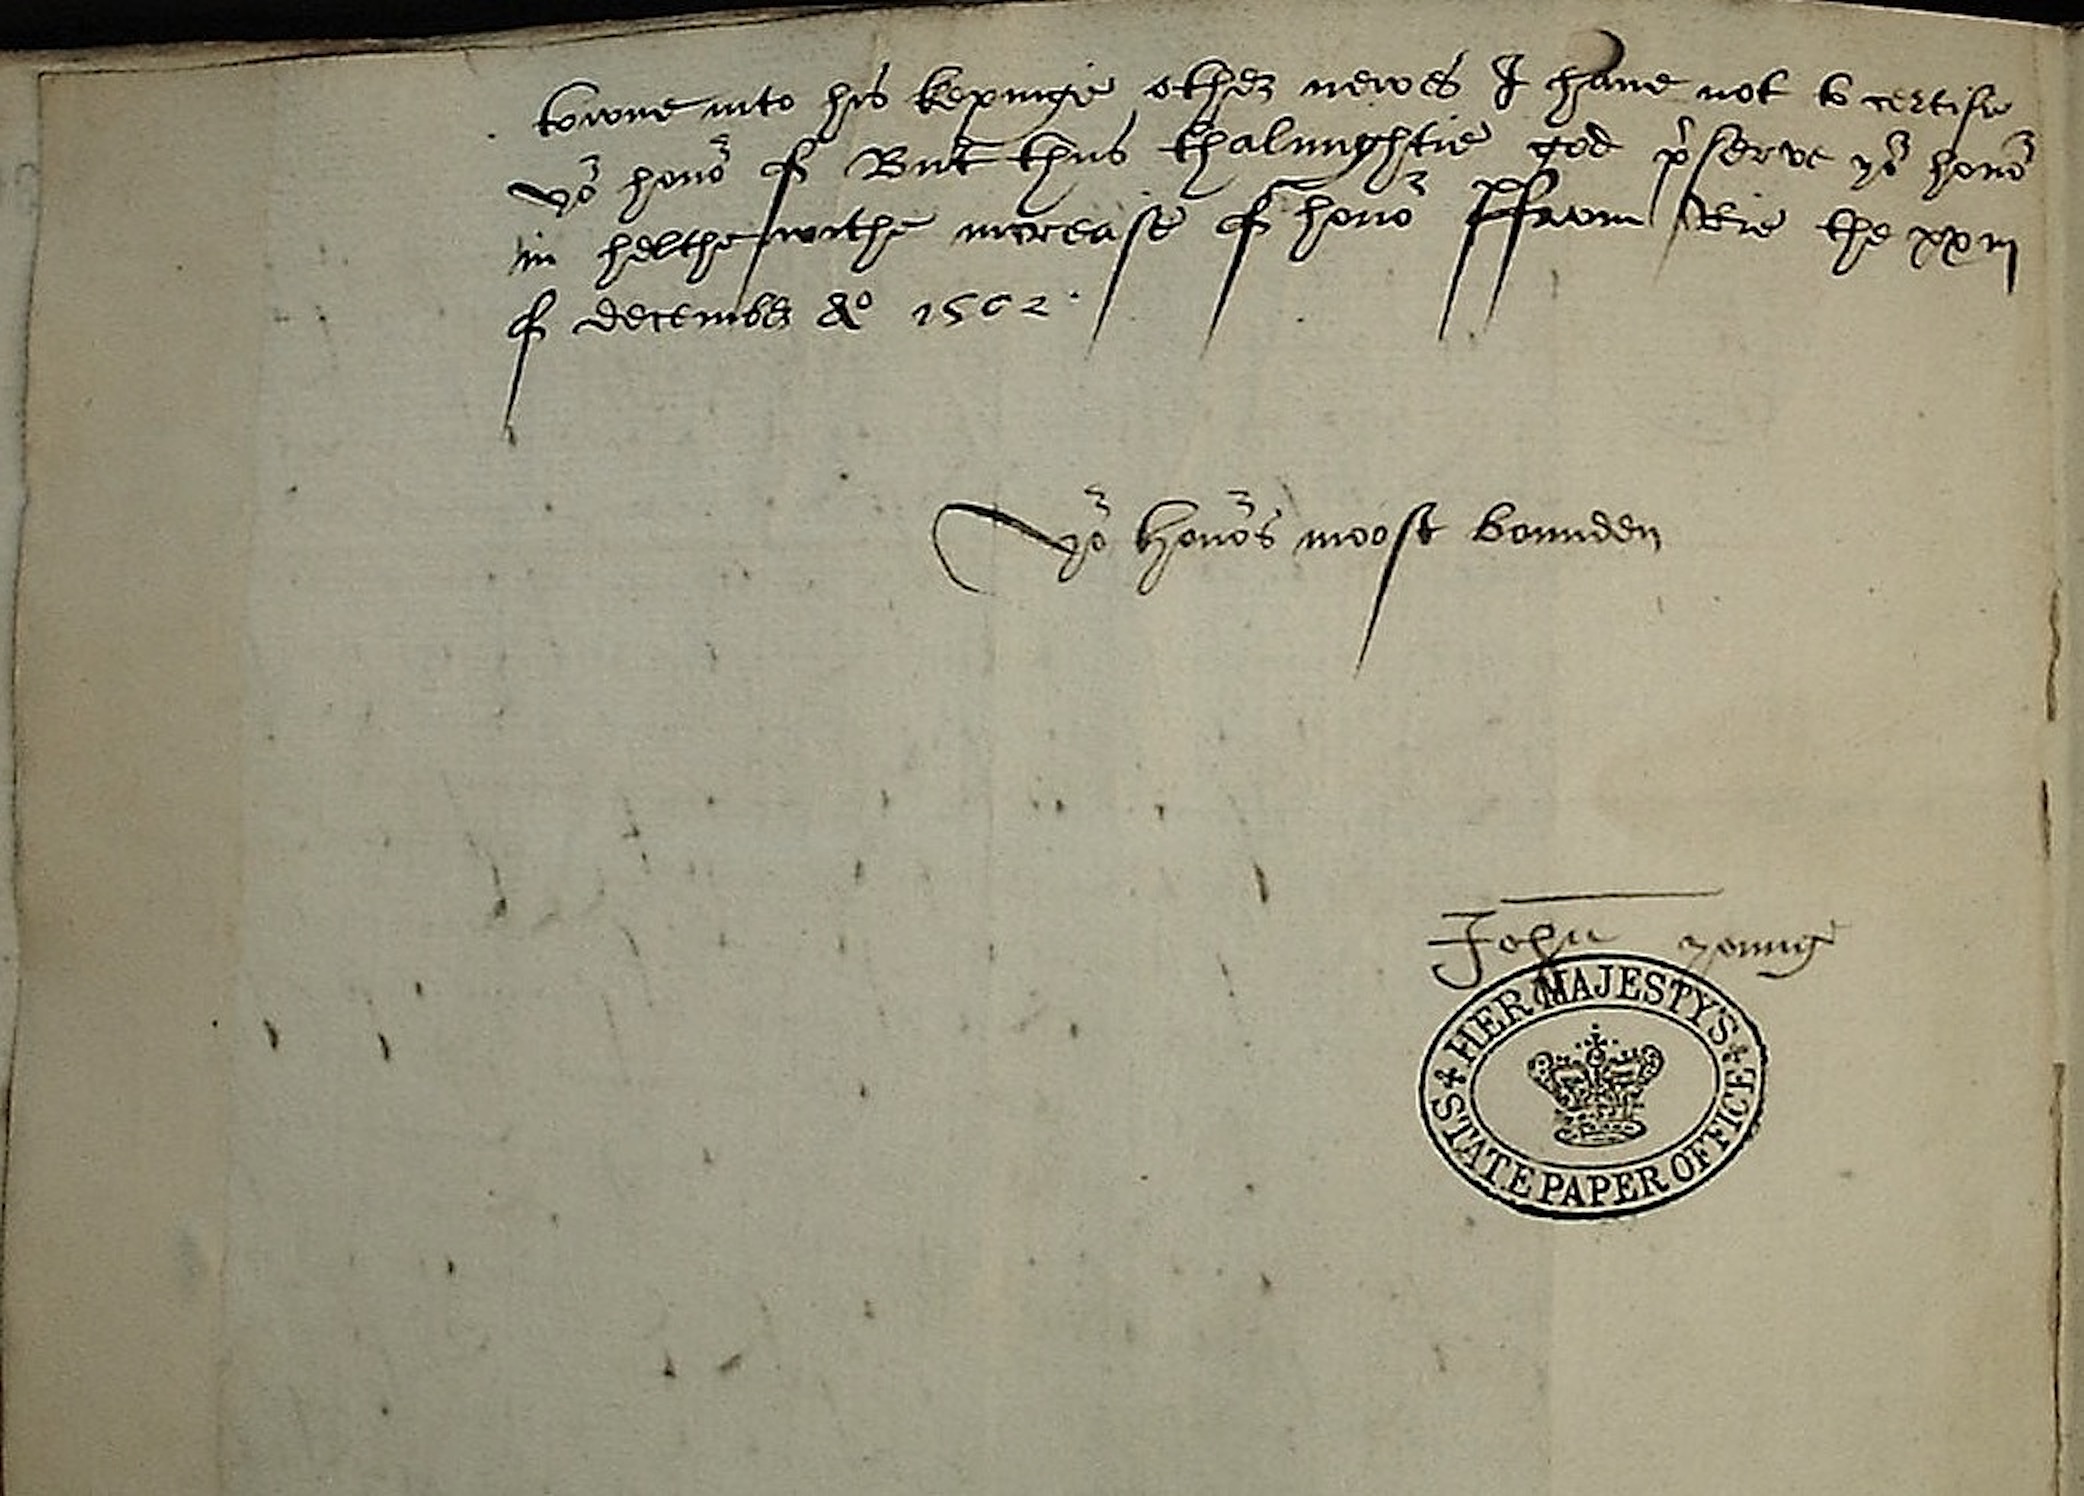 towne into his kepinge other newes I haue not to certifie
yor honor of But thus thalmightie god pserve yor honor
in helthe withe increase of honor ffrom Rie the xxiij
of december Ao 1562.
Yor honors moost bounden
John yonng
HER MAJESTY'S
STATE PAPER OFFICE